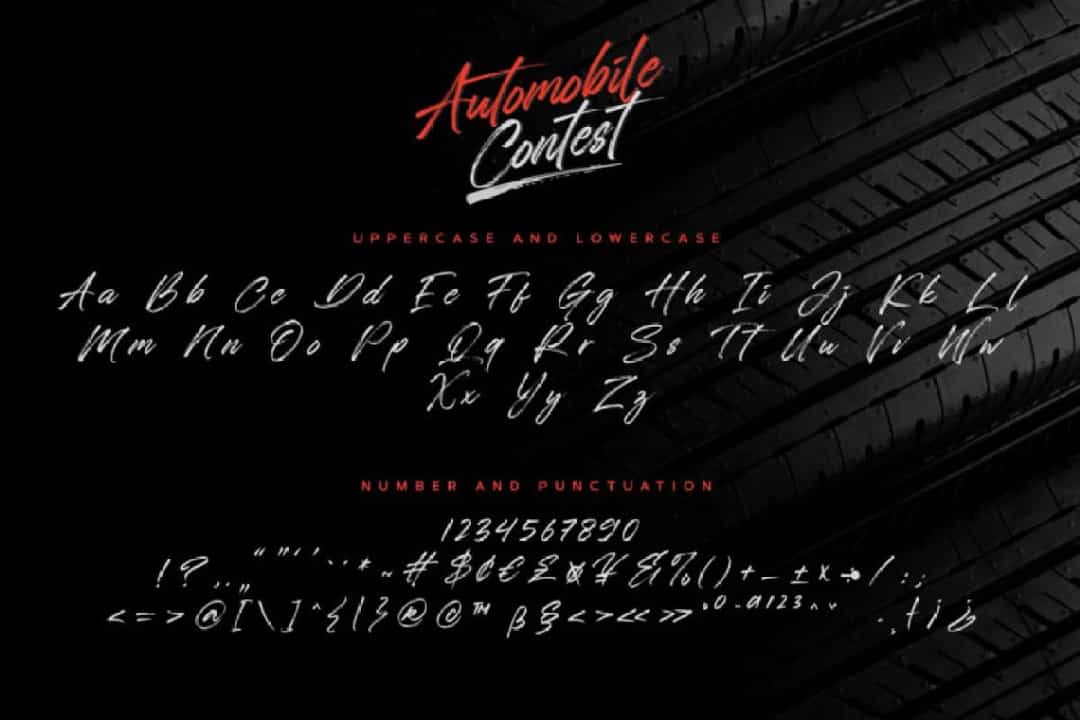 Automobile
Contest
UPPERCASE AND LOWERCASE
Aa Bb Cc Dd Ee Ff Gg Hh Ii Jj Kk Ll
Mm Nn Oo Pp Qq Rr Ss Tt Uu Vv Ww
Xx Yy Zz
NUMBER AND PUNCTUATION
1234567890
!?..„“”‘’`´*~#$¢€£¤¥&%()+-±×÷/:;
<=>@[\]^{|}®©™β§<>«»°º-ª123^ˇ ·.¸†¡¿